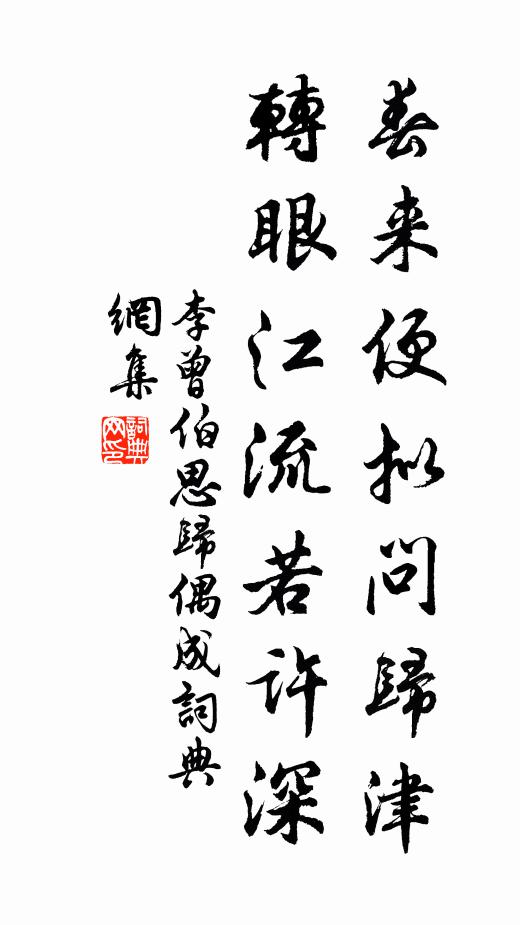 春来便拟问歸津
轉眼江流若许深
李曾伯思歸偶成詞典
網集
詞典网印